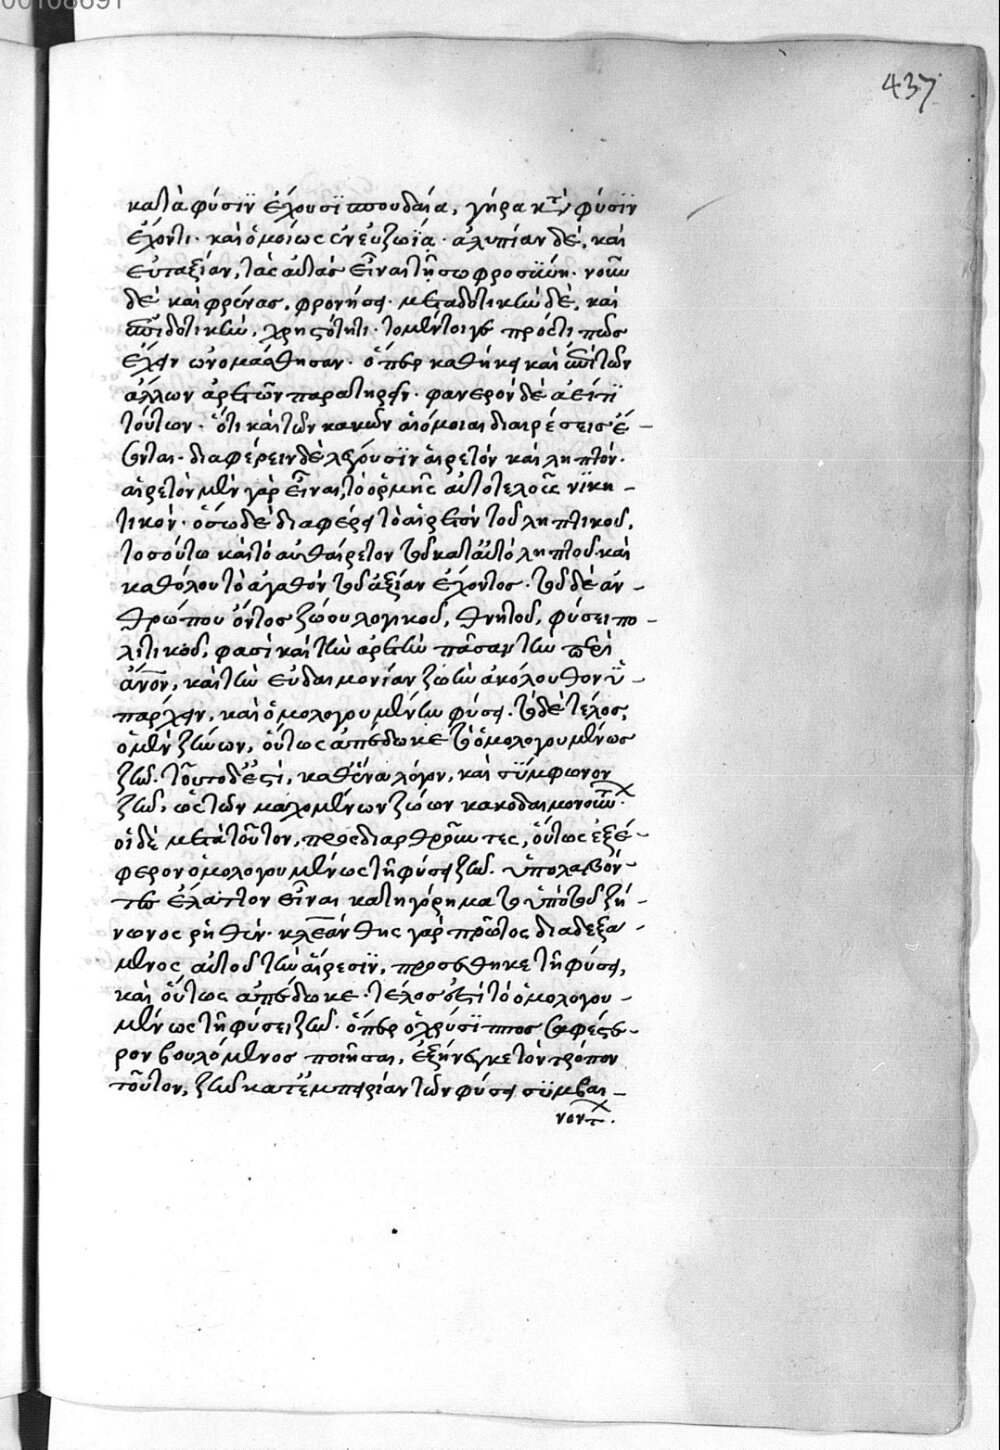 00108691
437
κατὰ φύσιν ἔχουσι σπουδαία, γήρα κτ φύσιν
ἔχοντι. καὶ ὁμοίως ἐν εὐζωΐα. ἀλυπίαν δὲ, καὶ
εὐταξίαν, τὰς αὐτὰς εἶναι τῆ σωφροσύνη. νοῦν
δὲ καὶ φρένας, φρονήσει. μεταδοτικὴν δὲ, καὶ
ἐπιδοτικὴν, χρηστότητι. τὸ μέντοιγε πρός τι πῶς
ἔχειν ὠνομάσθησαν. ὅπερ καθήκει καὶ ἐπὶ τῶν
ἄλλων ἀρετῶν παρατηρεῖν. φανερὸν δὲ ἀεὶ ἐπὶ
τούτων. ὅτι καὶ τῶν κακῶν αἱ ὅμοιαι διαιρέσεις ἔ-
σονται. διαφέρειν δὲ λέγουσιν αἱρετὸν καὶ ληπτόν.
αἱρετὸν μὲν γὰρ εἶναι, τὸ ὁρμῆς αὐτοτελοῦς νικη-
τικόν. ὅσω δὲ διαφέρει τὸ αἱρετὸν τοῦ ληπτικοῦ,
τοσούτω καὶ τὸ αὐθαίρετον τοῦ κατ αὐτὸ ληπτοῦ. καὶ
καθόλου τὸ ἀγαθὸν τοῦ ἀξίαν ἔχοντος. τοῦ δὲ ἀν-
θρώπου ὄντος ζώου λογικοῦ, θνητοῦ, φύσει πο-
λιτικοῦ, φασὶ καὶ τὴν ἀρετὴν πᾶσαν τὴν περὶ
ἄνον, καὶ τὴν εὐδαιμονίαν ζωὴν ἀκόλουθον ὑ-
πάρχειν, καὶ ὁμολογουμένην φύσει. τὸ δὲ τέλος,
ὁ μὲν ζήνων, οὕτως ἀπέδωκε τὸ ὁμολογουμένως
ζῆν. τοῦτο δ' ἐστὶ, καθ' ἕνα λόγον, καὶ σύμφωνον
ζῆν, ὡς τῶν μαχομένων ζώων κακοδαιμονούντ.
οἱ δὲ μετὰ τοῦτον, προςδιαρθροῦντες, οὕτως ἐξέ-
φερον ὁμολογουμένως τῆ φύσει ζῆν. ὑπολαβόν-
τες ἔλαττον εἶναι κατηγόρημα τὸ ὑπὸ τοῦ ζή-
νωνος ῥηθέν. κλεάνθης γὰρ πρῶτος διαδεξά-
μενος αὐτοῦ τὴν αἵρεσιν, προσέθηκε τῆ φύσει,
καὶ οὕτως ἀπέδωκε. τέλος ἐστὶ τὸ ὁμολογου-
μένως τῆ φύσει ζῆν. ὅπερ ὁ χρύσιππος σαφέστε-
ρον βουλόμενος ποιῆσαι, ἐξήνεγκε τὸν τρόπον
τοῦτον, ζῆν κατ' ἐμπειρίαν τῶν φύσει συμβαι-
νόντ.